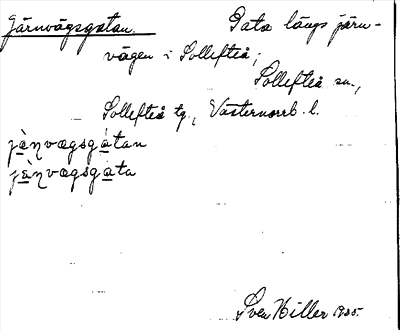 Järnvägsgatan. Gata längs järn-
vägen i Sollefteå;
Sollefteå sn.,
Sollefteå tg., Västernorrl. l.
jæ̀ŋvægsgàtan
jæ̀ŋvægsgàta
Sven Hiller 1935.